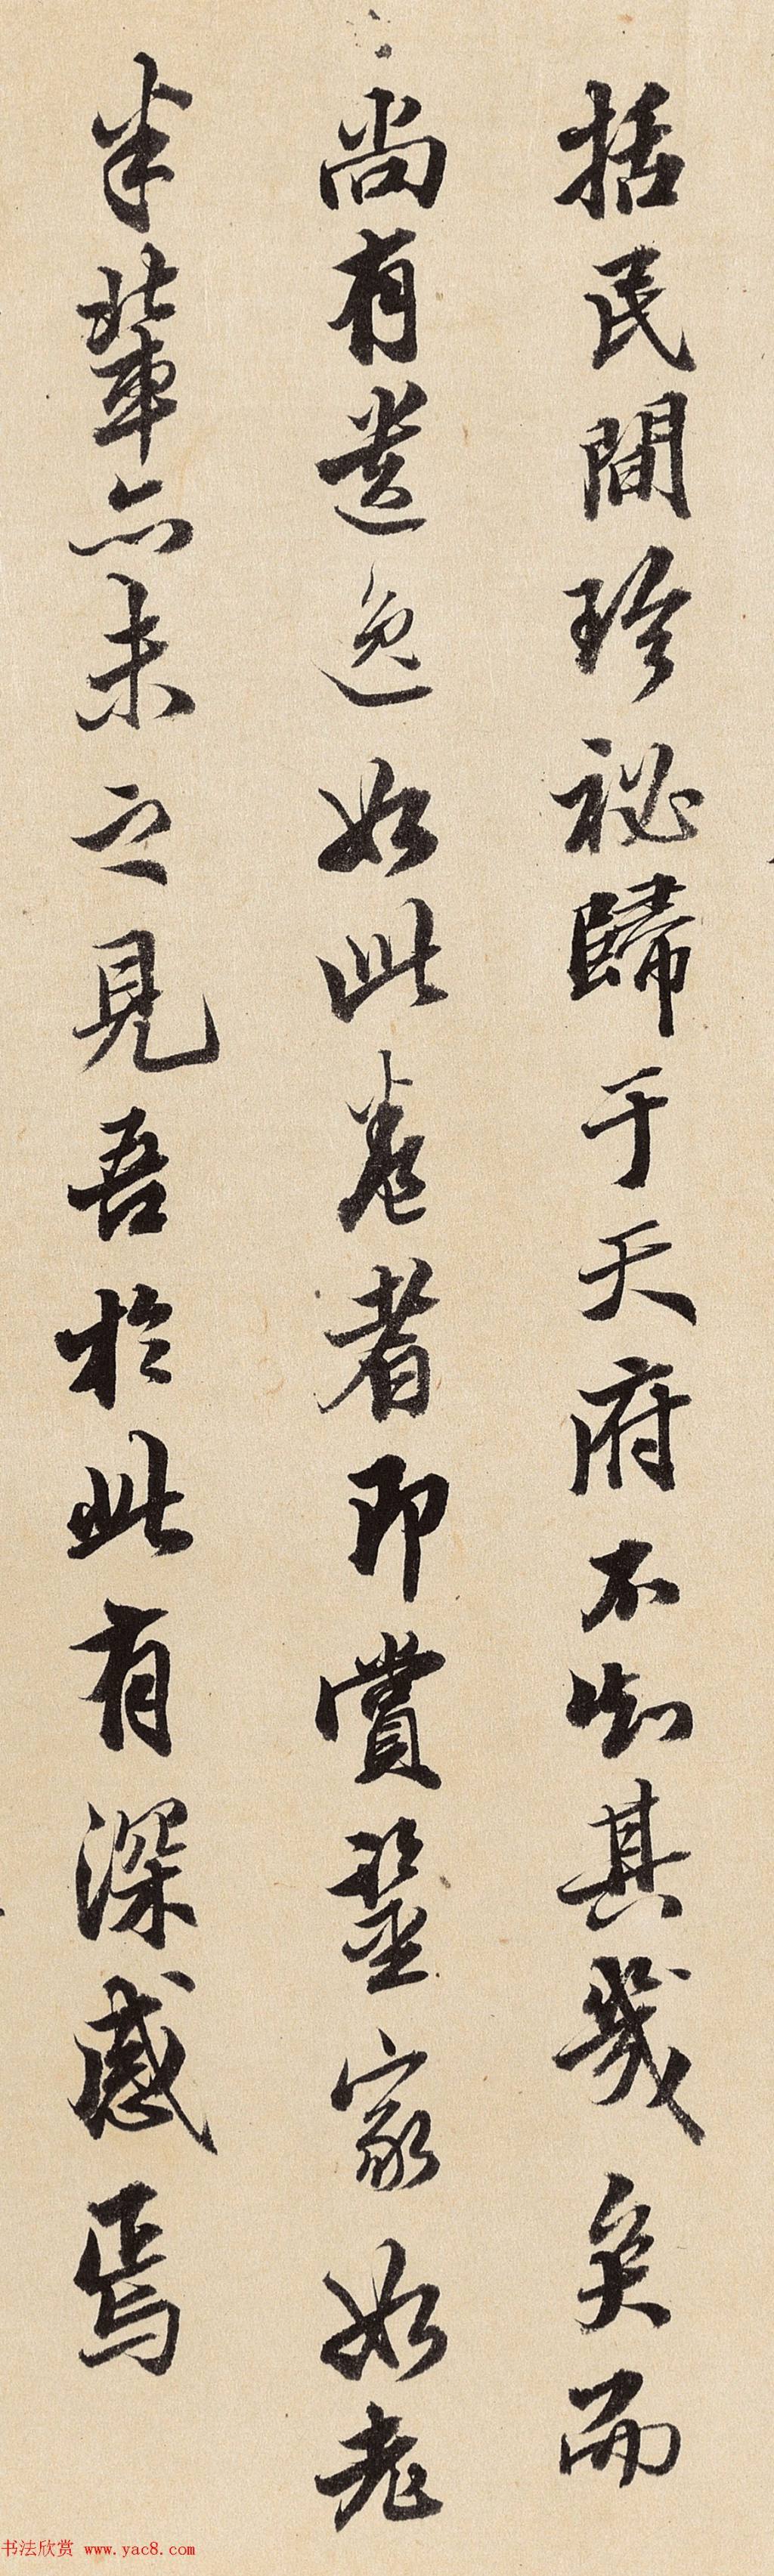 括民間珍祕歸于天府不知其幾矣而
尚有遺逸如此卷者即賞鑒家如老
米輩亦未之見吾於此有深感焉
书法欣赏 www.yac8.com